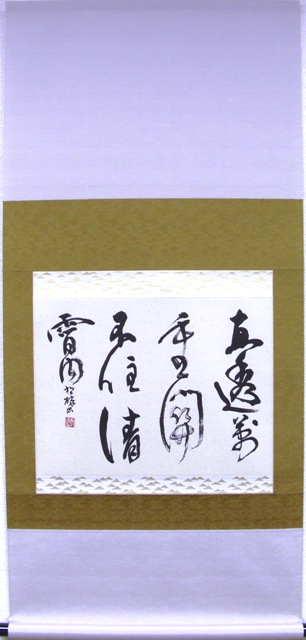 直透萬
重關
不住清
霄内